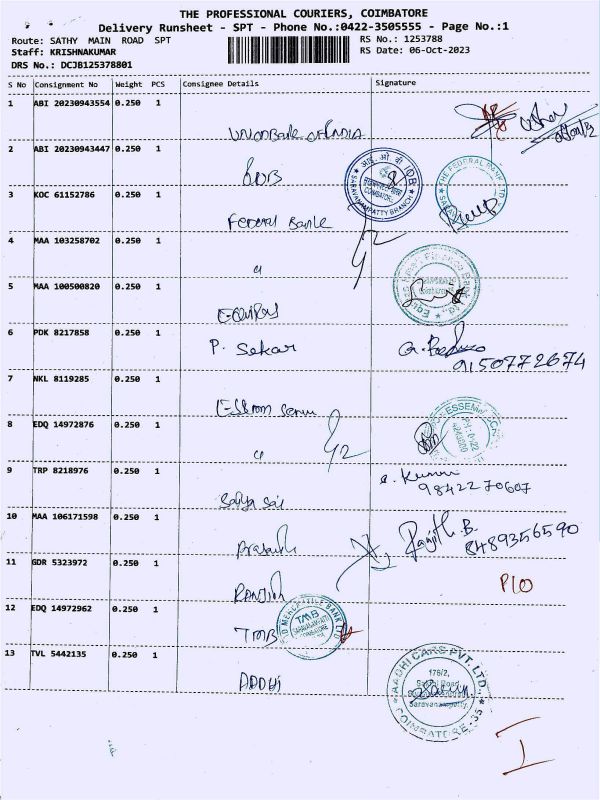 THE PROFESSIONAL COURIERS, COIMBATORE
Delivery Runsheet - SPT - Phone No.:0422-3505555 - Page No.:1
Route: SATHY MAIN ROAD SPT
RS No.: 1253788
Staff: KRISHNAKUMAR
RS Date: 06-Oct-2023
DRS No.: DCJB125378801
S No Consignment No Weight PCS Consignee Details Signature
1 ABI 20230943554 0.250 1
UNION Bank of INDIA
2 ABI 20230943447 0.250 1
IOB
आई. ओ. बी IOB
SARAVANAMPATTY BRANCH
COIMBATORE
THE FEDERAL BANK LTD
3 KOC 61152786 0.250 1
Federal Bank
4 MAA 103258702 0.250 1
"
5 MAA 100500820 0.250 1
EQUITAS
6 PDK 8217858 0.250 1
P. Sekar
9150772674
7 NKL 8119285 0.250 1
8 EDQ 14972876 0.250 1
"
9 TRP 8218976 0.250 1
Satya Sai
e. Kumar
9842270607
10 MAA 106171598 0.250 1
Prasanth
Ranjith. B.
8489356590
11 GDR 5323972 0.250 1
RANJITH
P10
12 EDQ 14972962 0.250 1
TMB
D MERCANTILE BANK LTD
TMB
13 TVL 5442135 0.250 1
ADDHI
AADHI CARS PVT. LTD.,
176/2,
Saravanampatty,
COIMBATORE-35
I